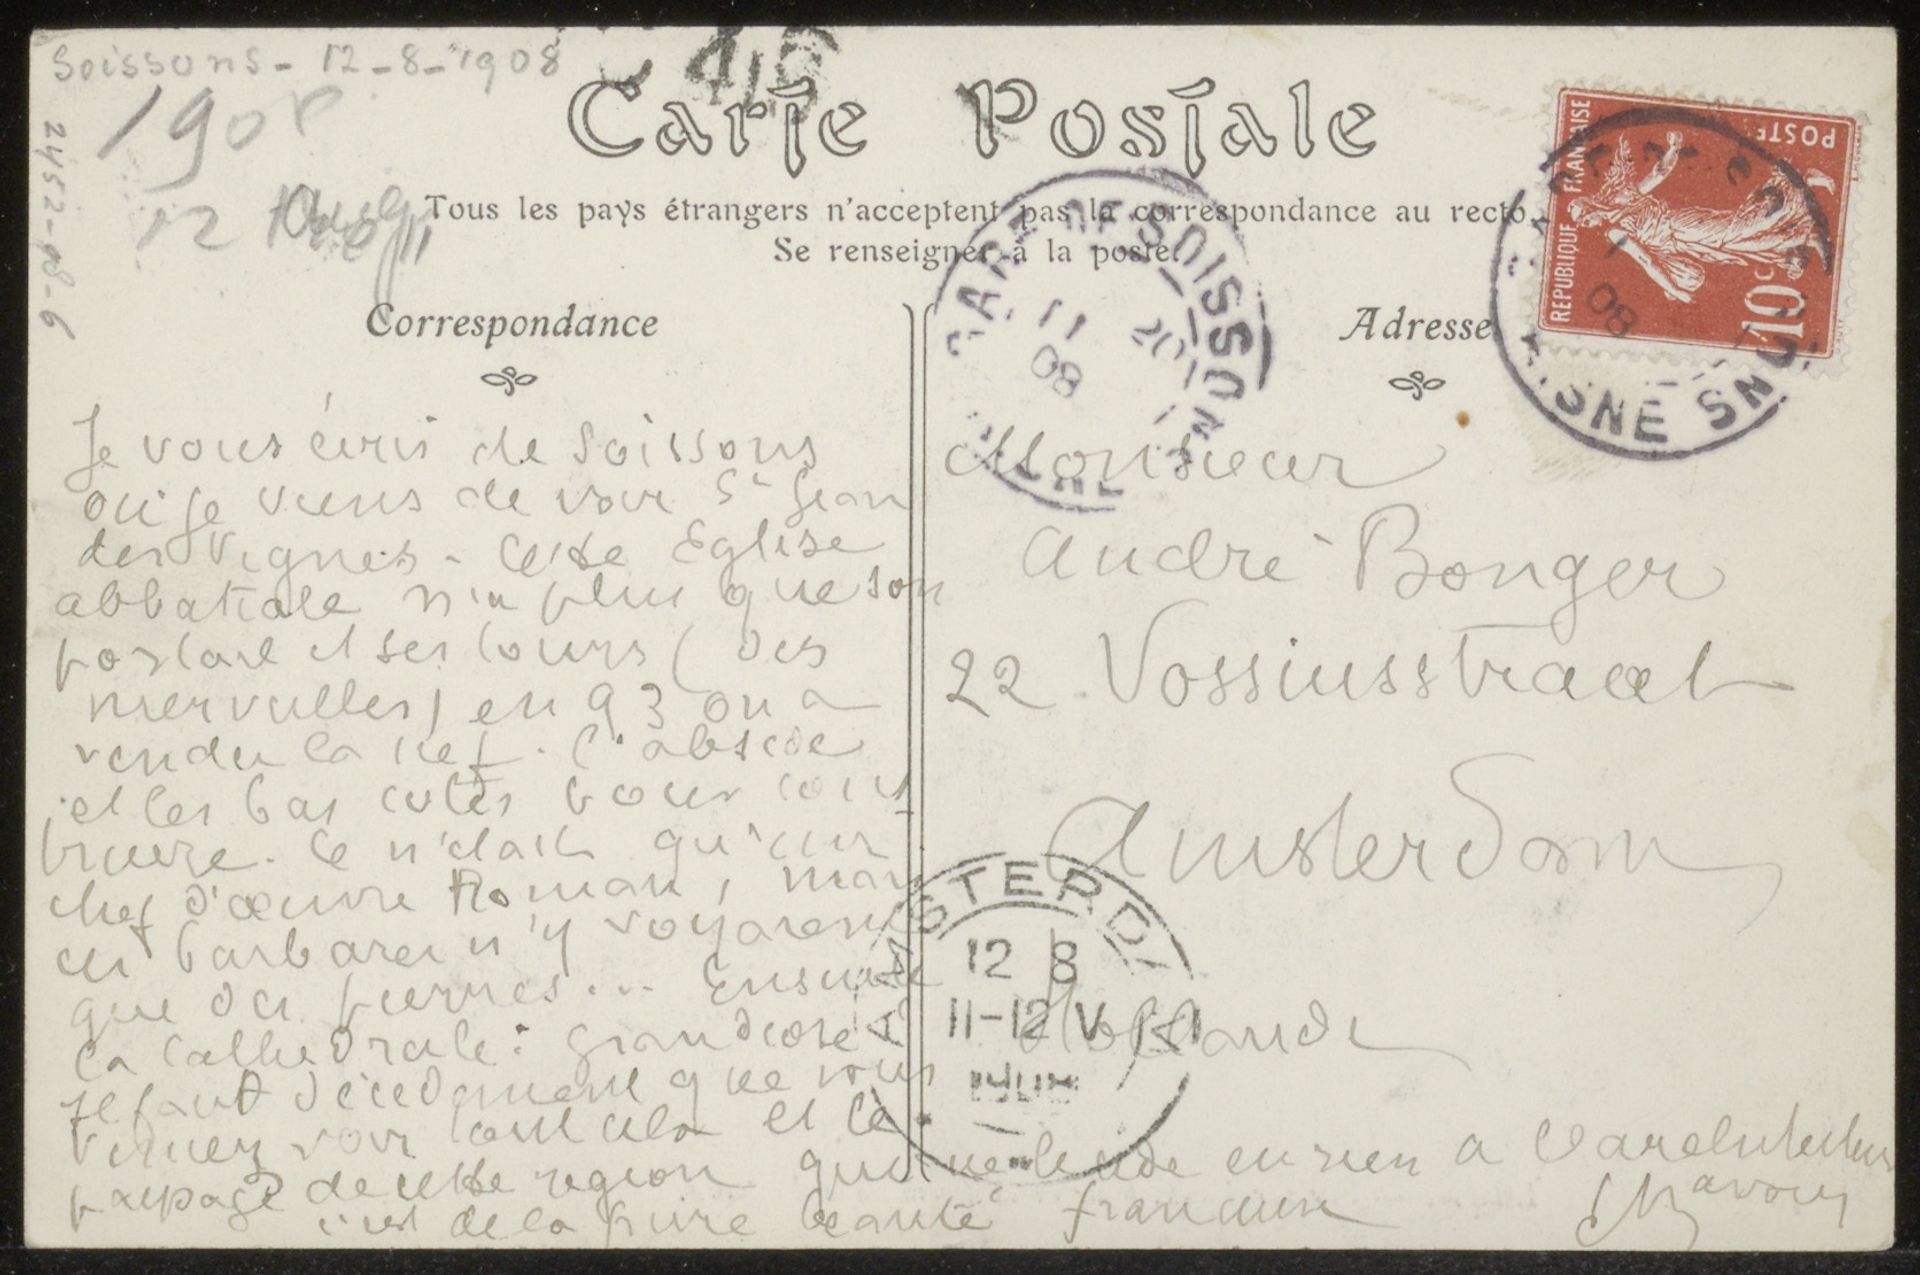 Soissons - 12-8-1908
1908
12 Aug
24452-08-6
Carte Postale
Tous les pays étrangers n'acceptent pas la correspondance au recto.
Se renseigner à la poste.
Correspondance
Adresse
REPUBLIQUE FRANÇAISE
POSTES
10c
GARE DE SOISSONS
11
20
08
AISNE
08
Je vous écris de Soissons
où je viens de voir St Jean
des Vignes - Cette Eglise
abbatiale n'a plus que son
portail et ses tours (des
merveilles) en 93 on a
vendu la nef. l'abside
et les bas cotés pour cons-
truire. Ce n'était qu'un
chef d'œuvre Roman, mais
ces barbares n'y voyaient
que des pierres... Ensuite
la Cathédrale: grandiose
Il faut décidément que vous
veniez voir tout cela et le
paysage de cette region qui ne le cède en rien à l'architecture
c'est de la pure beauté française
Monsieur
André Bonger
22 Vossiusstraat
Amsterdam
Hollande
AMSTERDA
12 8
11-12 V